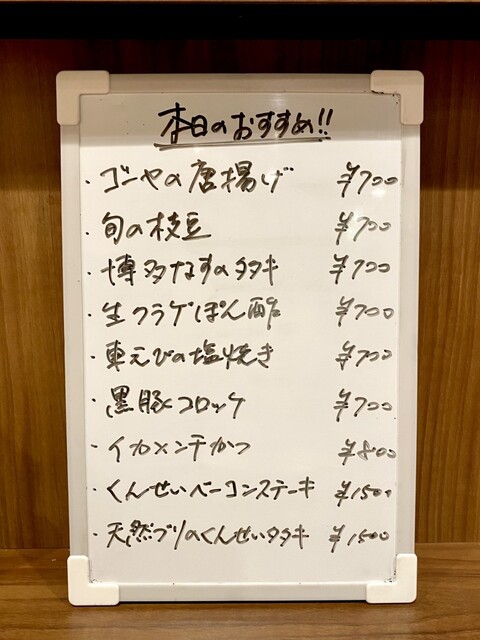 本日のおすすめ!!
・ゴーヤの唐揚げ ¥700
・旬の枝豆 ¥700
・博多なすのタタキ ¥700
・生クラゲぽん酢 ¥700
・車えびの塩焼き ¥700
・黒豚コロッケ ¥700
・イカメンチかつ ¥800
・くんせいベーコンステーキ ¥1500
・天然ブリのくんせいタタキ ¥1500